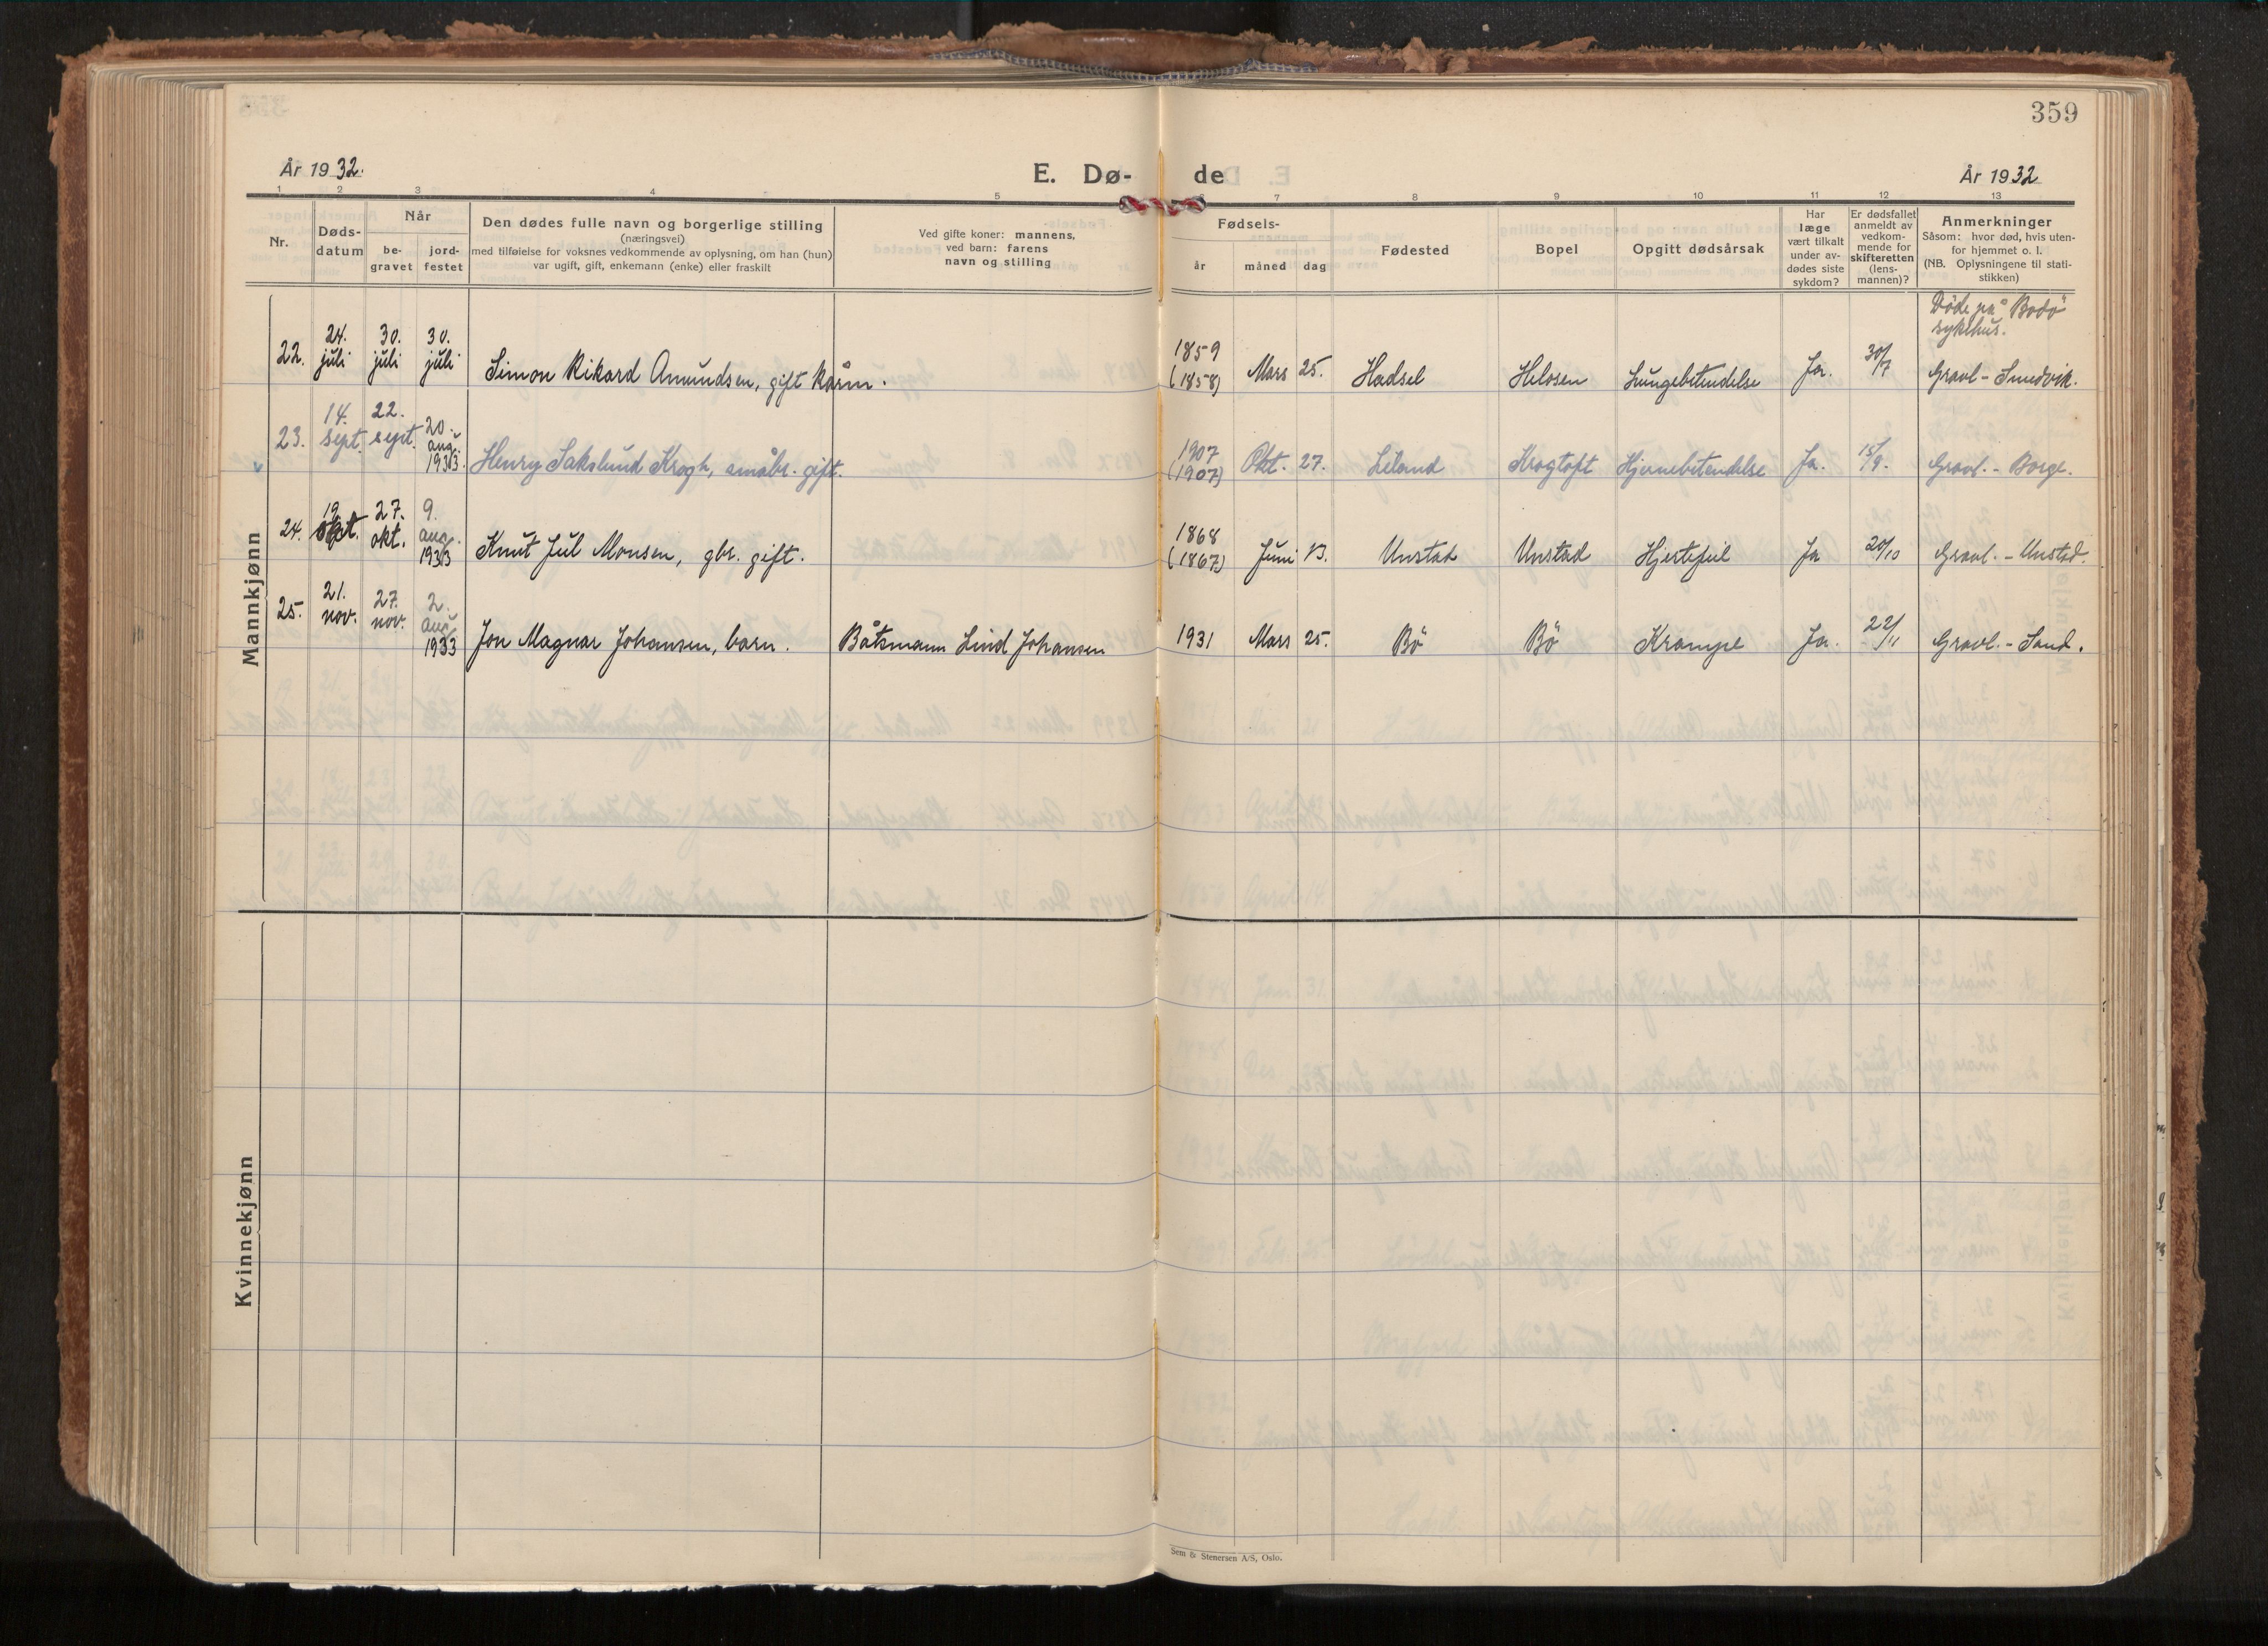 359
År 1932.
E. Dø- de
År 1932
1 2 3 4 5 6 7 8 9 10 11 12 13
Nr.
Døds-
datum
Når
be-
gravet
jord-
festet
Den dødes fulle navn og borgerlige stilling
(næringsvei)
med tilføielse for voksnes vedkommende av oplysning, om han (hun)
var ugift, gift, enkemann (enke) eller fraskilt
Ved gifte koner: mannens,
ved barn: farens
navn og stilling
Fødsels-
år
måned
dag
Fødested
Bopel
Opgitt dødsårsak
Har
læge
vært tilkalt
under av-
dødes siste
sykdom?
Er dødsfallet
anmeldt av
vedkom-
mende for
skifteretten
(lens-
mannen)?
Anmerkninger
Såsom: hvor død, hvis uten-
for hjemmet o. l.
(NB. Oplysningene til stati-
stikken)
Mannkjønn
22. 24. juli 30. juli 30. juli Simon Rikard Amundsen, gift kårm. 1859 (1858) Mars 25. Hadsel Helosen Lungebetendelse Ja. 30/7 Døde på Bodö sykehus. Gravl - Smedvik.
23. 14. sept. 22. sept. 20. aug. 1933. Henry Sakslund Krogh, småbr. gift. 1907 (1907) Okt. 27. Leland Krogtoft Hjernebetendelse Ja. 15/9. Gravl. - Borge.
24. 19. okt. 27. okt. 9. aug. 1933 Knut Jul Monsen, gbr. gift. 1868 (1867) Juni 13. Unstad Unstad Hjertefeil Ja 20/10 Gravl. - Unstad.
25. 21. nov. 27. nov. 2. aug. 1933 Jon Magnar Johansen, barn. Båtsmann Lind Johansen 1931 Mars 25. Bö Bö Krampe Ja. 22/11 Gravl. - Sand.
Kvinnekjønn
Sem & Stenersen A/S, Oslo.